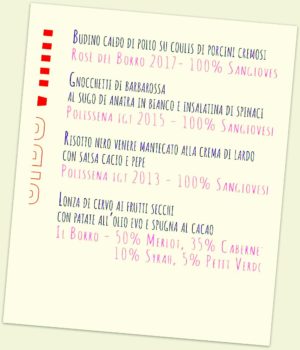 BUDINO CALDO DI POLLO SU COULIS DI PORCINI CREMOSI
ROSÉ DEL BORRO 2017- 100% SANGIOVES
GNOCCHETTI DI BARBAROSSA
AL SUGO DI ANATRA IN BIANCO E INSALATINA DI SPINACI
POLISSENA IGT 2015 - 100% SANGIOVESI
RISOTTO NERO VENERE MANTECATO ALLA CREMA DI LARDO
CON SALSA CACIO E PEPE
POLISSENA IGT 2013 - 100% SANGIOVESI
LONZA DI CERVO AI FRUTTI SECCHI
CON PATATE ALL'OLIO EVO E SPUGNA AL CACAO
IL BORRO - 50% MERLOT, 35% CABERNE
10% SYRAH, 5% PETIT VERDO